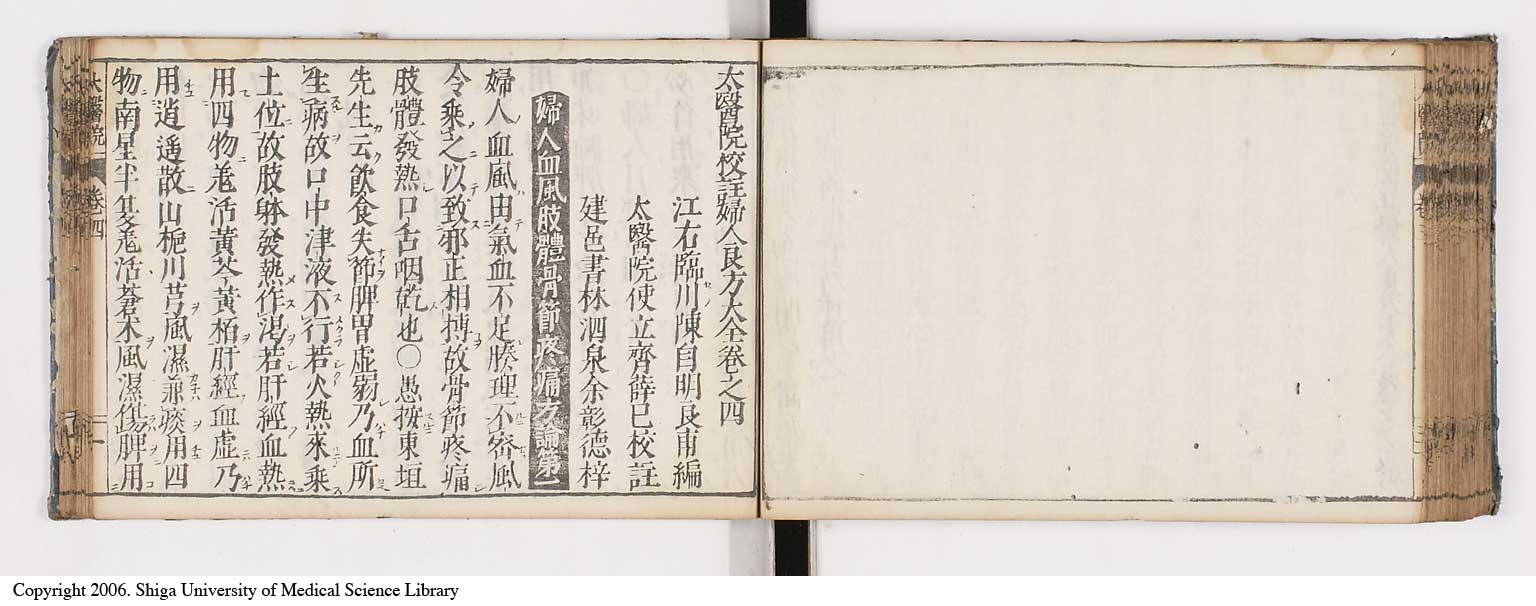 太醫院校註婦人良方大全卷之四
江右臨川陳自明良甫編
太醫院使立齊薛已校註
建邑書林泗泉余彰德梓
婦人血風肢體骨節疼痛方論第一
婦人血風由氣血不足腠理不密風
令乘之以致邪正相搏故骨節疼痛
肢體發熱口舌咽乾也○愚按東垣
先生云飲食失節脾胃虛弱乃血所
生病故口中津液不行若火熱來乘
土位故肢躰發熱作渴若肝經血熱
用四物羗活黃芩黃栢肝經血虛乃
用逍遥散山梔川芎風濕兼痰用四
物南星半夏羗活蒼术風濕傷脾用
太醫院 卷四 一
Copyright 2006. Shiga University of Medical Science Library